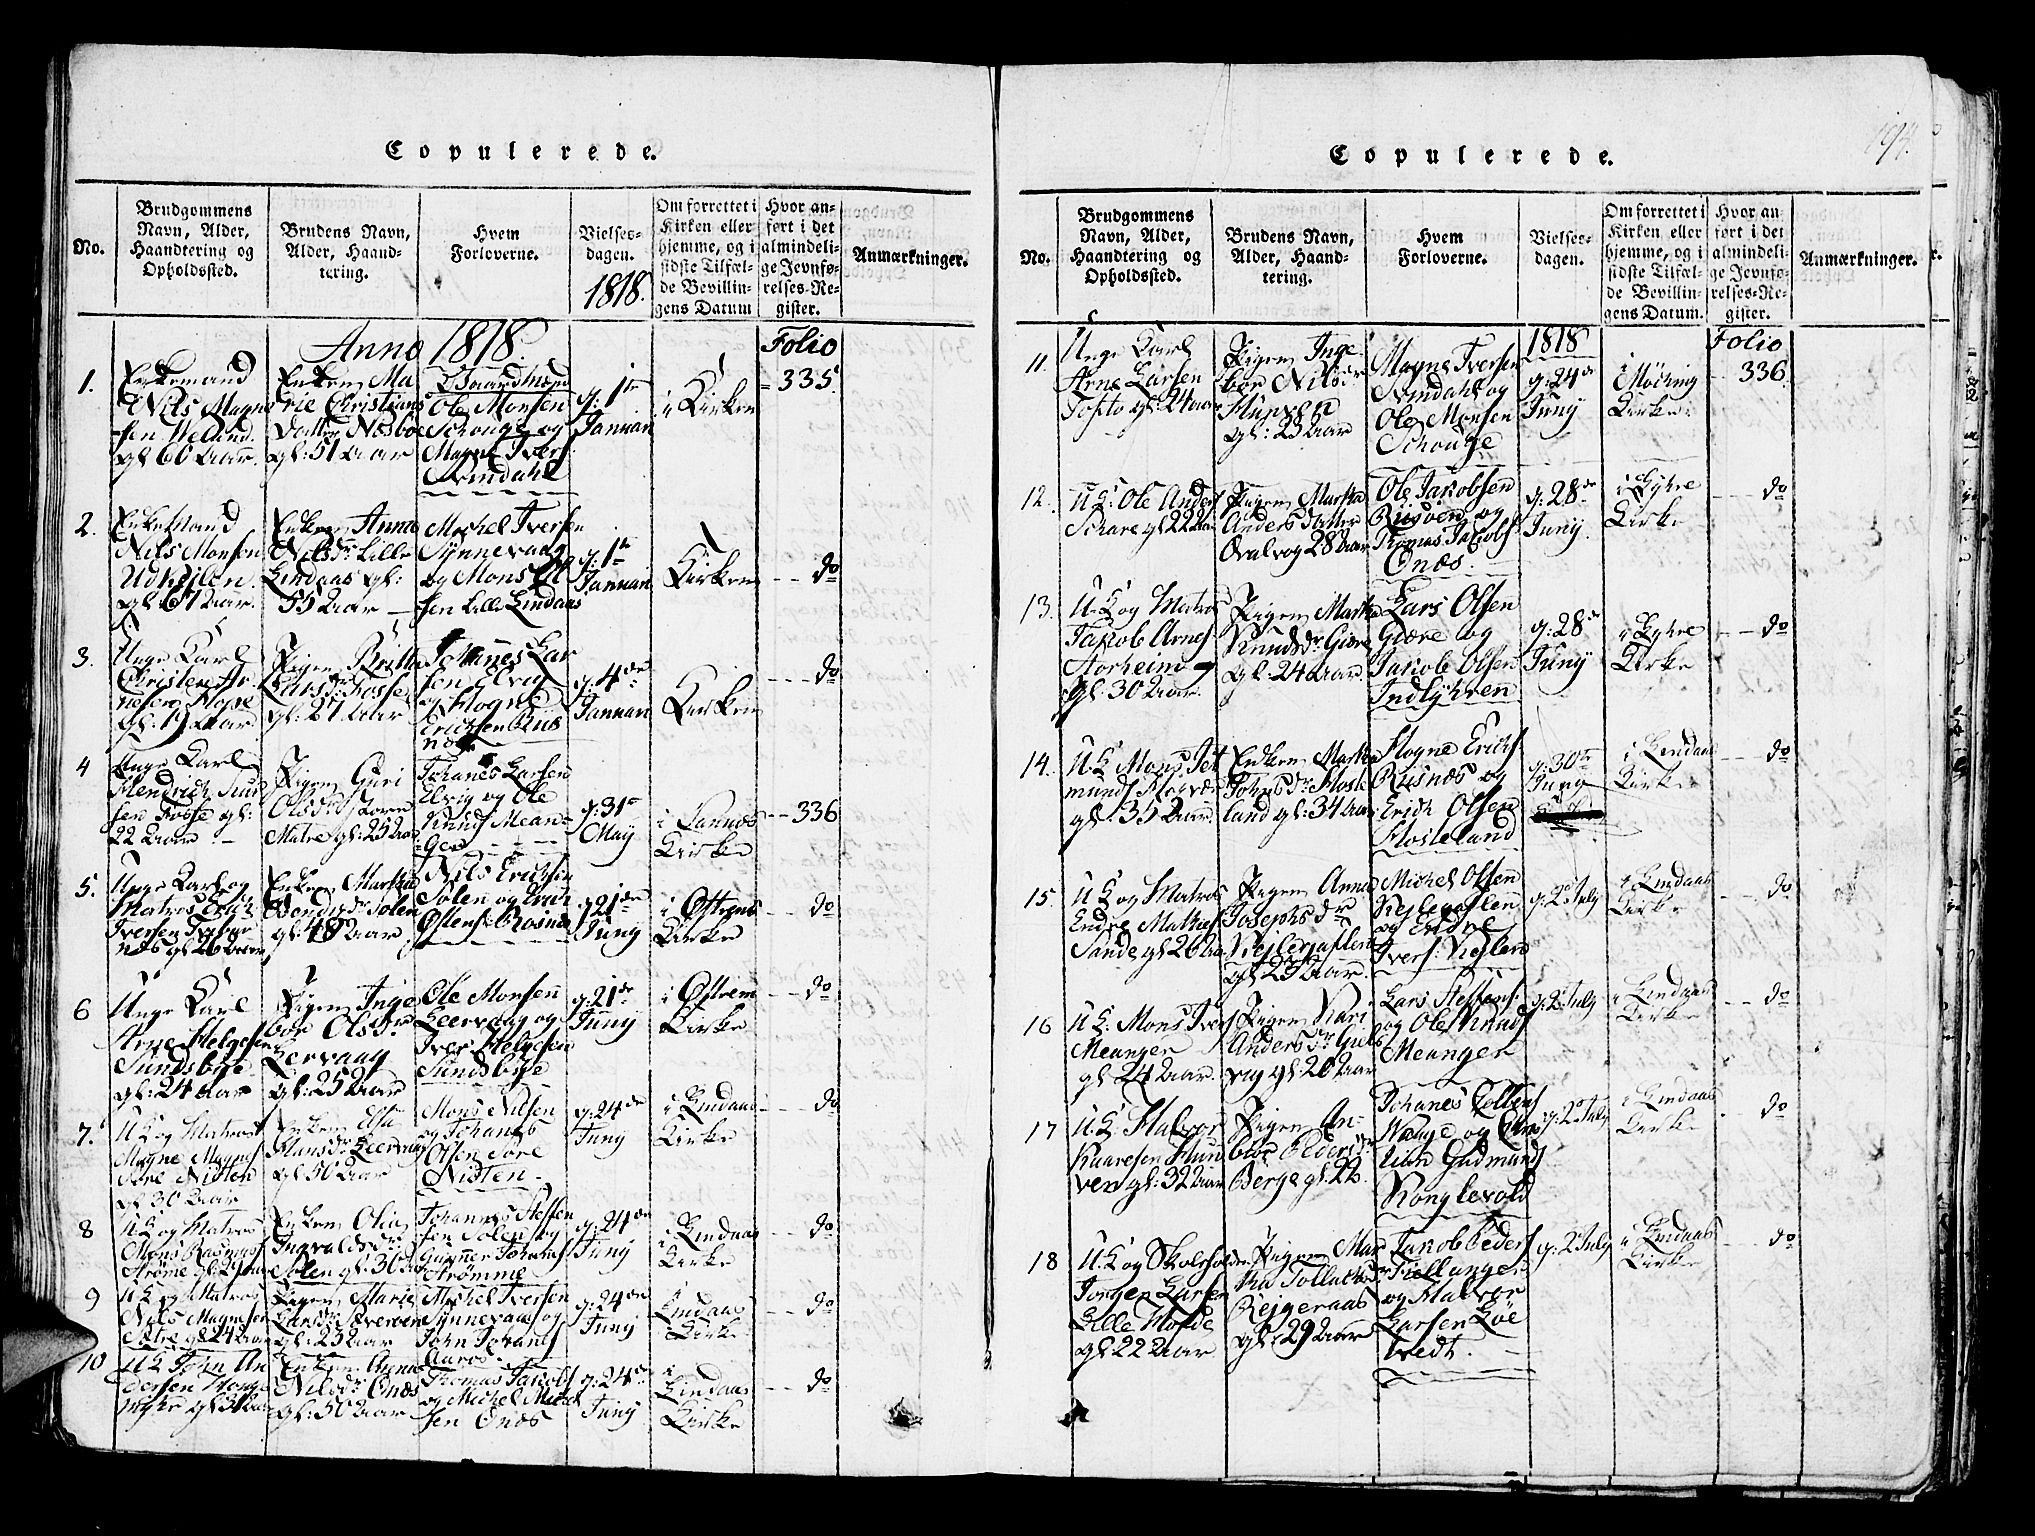 Copulerede.
No.
Brudgommens
Navn, Alder,
Haandtering og
Opholdssted.
Brudens Navn,
Alder, Haand-
tering.
Hvem
Forloverne.
Vielses-
dagen.
1818.
Om forrettet i
Kirken eller
hjemme, og i
sidste Tilfæl-
de Bevillin-
gens Datum
Hvor an-
ført i det
almindeli-
ge Jevnfø-
relses-Re-
gister.
Anmærkninger.
Anno 1818.
Folio
1.
Enkemand
Nils Magne
sen Weland.
gl 60 Aar.
Enken Ma
rie Christians
datter Nosboe
gl: 51 Aar
Ole Monsen
Schouge og
Magne Ivers
Svindahl
g: 1te
Januari
i Kirken
335
2.
Enkemand
Nils Monsen
Udkeilen
gl: 67 Aar.
Enken Anna
Nilsdr Lille
Lindaas gl:
55 Aar
Michel Iversen
Synnevaag
og Mons Ol
sen Lille Lindaas
g: 1te
Januari
Kirken
do
3.
Unge Karl
Christen Ar
nesen Hope
gl: 19 Aar
Pigen Britta
Larsdr Fosse
gl: 27 Aar
Johanes Lar
sen Elvig
og Hogne
Erichsen Riis
nes
g: 4de
Januari
Kirken
do
4
Unge Karl
Hendrich
sen Fosse gl:
22 Aar
Pigen Guri
Olsdr
Matre gl: 25 Aar
Johanes Larsen
Elvig og Ole
Knuds Mean-
ger
g: 31te
May
i Sannæs
Kirke
336
5.
Unge Karl og
Matros Erich
Iversen
gl 26 Aar
Enken Martha
Solen
gl: 48 Aar
Nils Erichsen
Solen og Erich
Østens: Rosnæs
g 21de
Juny
i Østrems
Kirke
do
6
Unge Karl
Arne Helgesen
Sundsbye
gl: 24 Aar
Pigen Inge
bor Olsdr
Leervaag
gl: 25 Aar
Ole Monsen
Leervaag og
Iver Helgesen
Sundsbye
g: 21de
Juny
i Østrem
Kirke
do
7.
U K og Matros
Magne Magnes
Nisten
gl 30 Aar
Enken Elsa
Hansdr Leervaag
gl 50 Aar
Mons Nilsen
og Johanes
Olsen
Nisten.
g: 24de
Juny
i Lindaas
Kirke
do
8
U K og Matros
Mons Rasmus
Strøme gl: 29 Aar
Enken Olia
Ingvaldsdr
Solen gl: 30 Aar
Johannes Steffen
sen Solen og
Gunner Johans
Strømme
g: 24de
Juny
i Lindaas
Kirke
do
9
U K og Matros
Nils Magnesen
Sætre gl 24 Aar
Pigen Marie
Larsdr
gl: 25 Aar
Michel Iversen
Synnevaag og
John Johans
Aaros.
g: 24de
Juny
i
Lindaas
Kirke
do
10
U K John An
dersen
gl 31 Aar
Enken Anna
Nilsdr Onæs
gl: 50 Aar
Thomas Jacobs
og Michel Michel
sen Onæs
g: 24de
Juny
i
Lindaas
Kirke
do
Copulerede.
No.
Brudgommens
Navn, Alder,
Haandtering og
Opholdssted.
Brudens Navn,
Alder, Haand-
tering.
Hvem
Forloverne.
Vielses-
dagen.
Om forrettet i
Kirken eller
hjemme, og i
sidste Tilfæl-
de Bevillin-
gens Datum.
Hvor an-
ført i det
almindeli-
ge Jevnfø-
relses-Re-
gister.
Anmærkninger.
1818
Folio
11.
Unge Karl
Arne Larsen
Tofto gl: 24 Aar
Pigen Inge-
bor Nilsdr
gl: 23 Aar
Magne Iversen
Svindahl og
Ole Monsen
Schouge
g: 24de
Juny
i
Møgring
Kirke
336
12.
U K: Ole Anders
Schare gl 22 Aar
Pigen Martha
Anders datter
Qvalvog 28 Aar
Ole Jakobsen
Riisøen og
Thomas Jacobs
Onæs.
g: 28de
Juny
i Lykre
Kirke
do
13.
U. K og Matros
Jakob Arnes
gl: 30 Aar.
Pigen Martha
Knudsdr Giære
gl: 24 Aar
Lars Olsen
Giære og
Jakob Olsen
Indlykren
g: 28de
Juny
i Lykre
Kirke
do
14.
U. K Mons Jet
munds
gl. 35 Aar.
Enken Martha
Johnsdr Hoste
land gl: 34 Aar
Hogne Erichs
Riisnæs og
Erich Olsen
Hosteland
g: 30te
Juny
i Lindaas
Kirke
do
15.
U K og Matros
Endre Mathies
Sande gl 26 Aar
Pigen Anna
Josephsdr
Keylegaflen
gl 25 Aar.
Michel Olsen
Keylegaflen
og Endre
Ivers: Keylen
g: 2 July
i Lindaas
Kirke
do
16
U K: Mons Ivers
Meanger
gl 24 Aar.
Pigen Kari
Andersdr Guls
vig gl: 26 Aar
Lars Steffens:
og Ole Knuds
Meanger
g: 2 July
i Lindaas
Kirke
do
17
U. K: Halvor
Kaaresen Hun
ven gl: 32 Aar
Pigen An-
blor Pedersdr
Berge gl: 22
Johanes Tolleus
Wauge og Chris
tian Gudmunds
Konglevold
g: 2 July
i Lindaas
Kirke
do
18
U. K og Skoleholder
Jørgen Larsen
Lille Mofde
gl: 22 Aar
Pigen Mar
tha Tollachsdr
Rejgeraas
gl: 29 Aar
Jakob Peders
Fiellanger
og Halvor
Larsen Løe
tvedt.
g: 2 July
i Lindaas
Kirke
do